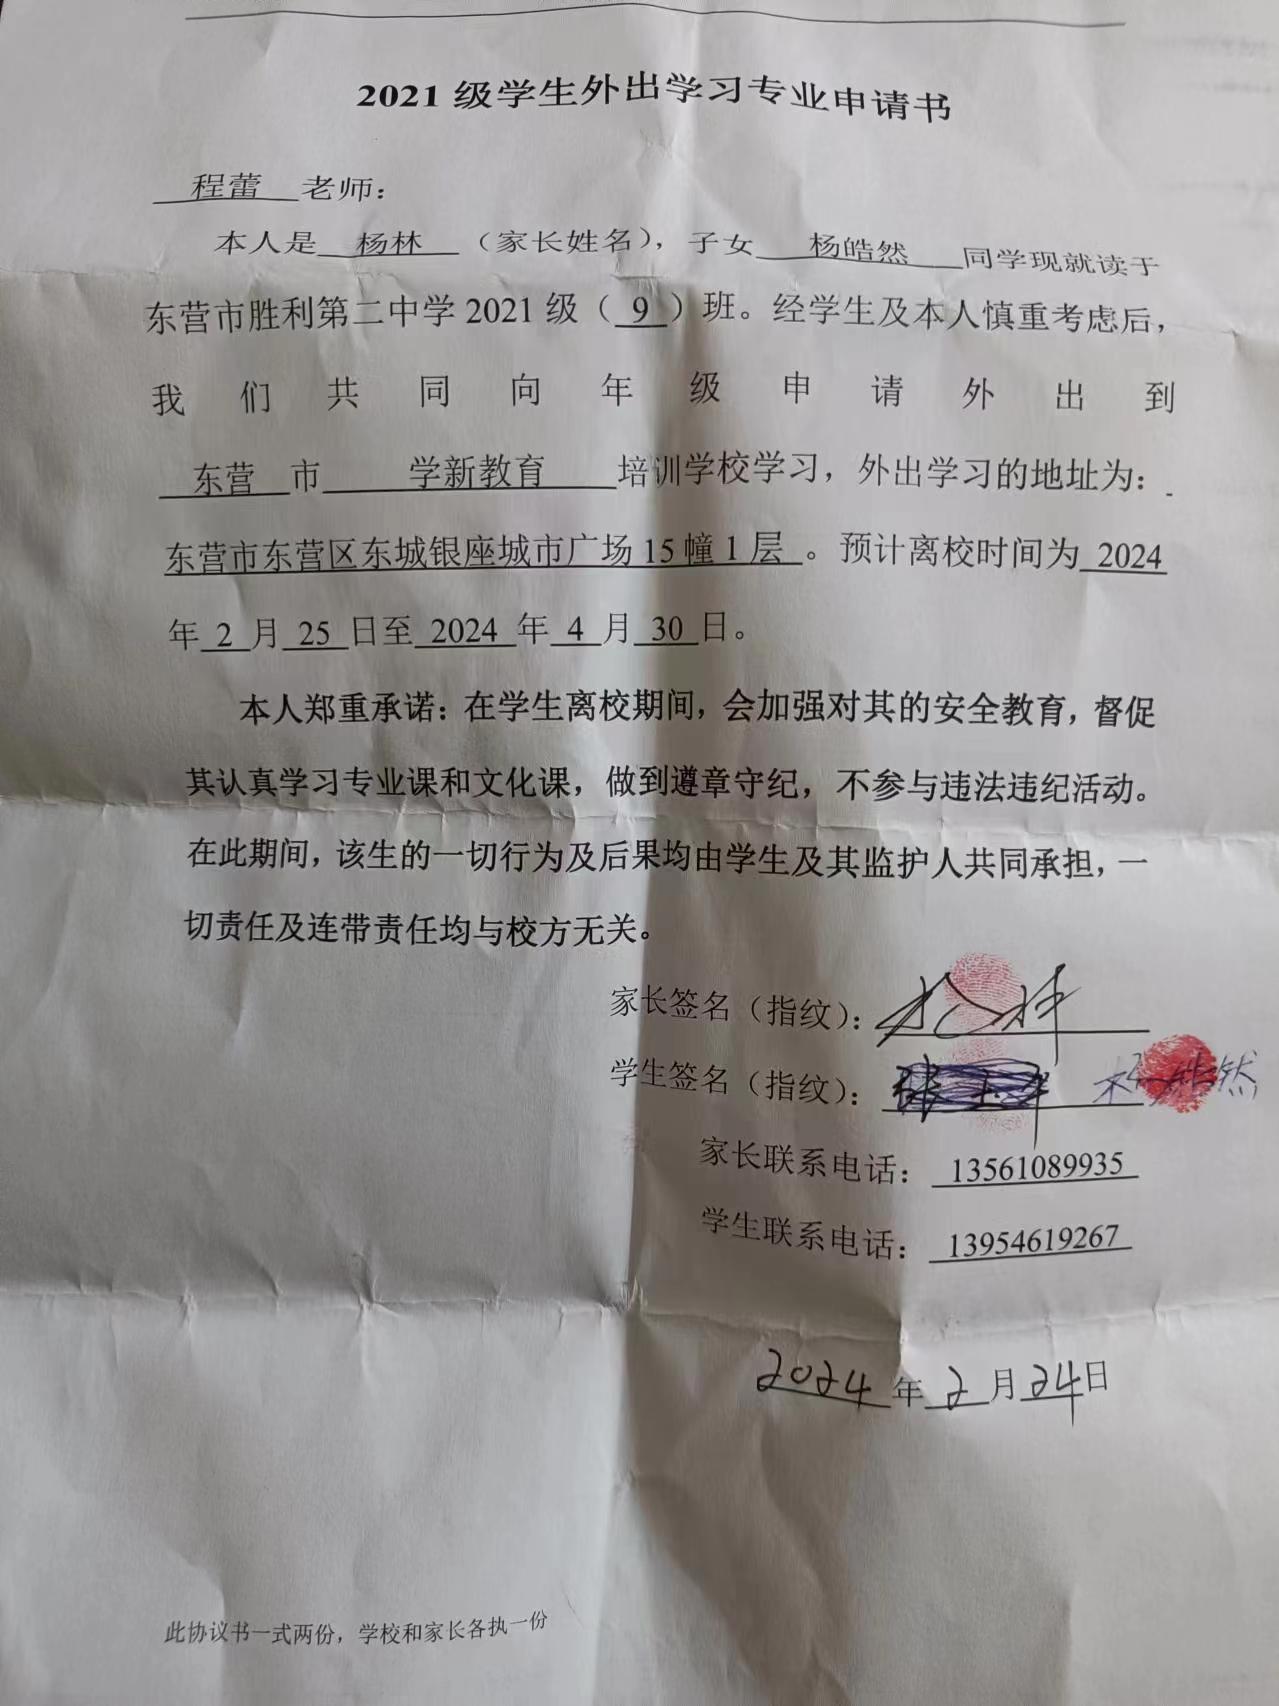 2021 级学生外出学习专业申请书
程蕾 老师：
本人是 杨林 （家长姓名），子女 杨皓然 同学现就读于
东营市胜利第二中学 2021 级（ 9 ）班。经学生及本人慎重考虑后，
我们共同向年级申请外出到
东营 市 学新教育 培训学校学习，外出学习的地址为：
东营市东营区东城银座城市广场 15 幢 1 层 。预计离校时间为 2024
年 2 月 25 日至 2024 年 4 月 30 日。
本人郑重承诺：在学生离校期间，会加强对其的安全教育，督促
其认真学习专业课和文化课，做到遵章守纪，不参与违法违纪活动。
在此期间，该生的一切行为及后果均由学生及其监护人共同承担，一
切责任及连带责任均与校方无关。
家长签名（指纹）： 杨林
学生签名（指纹）： 杨皓然
家长联系电话： 13561089935
学生联系电话： 13954619267
2024 年 2 月 24 日
此协议书一式两份，学校和家长各执一份